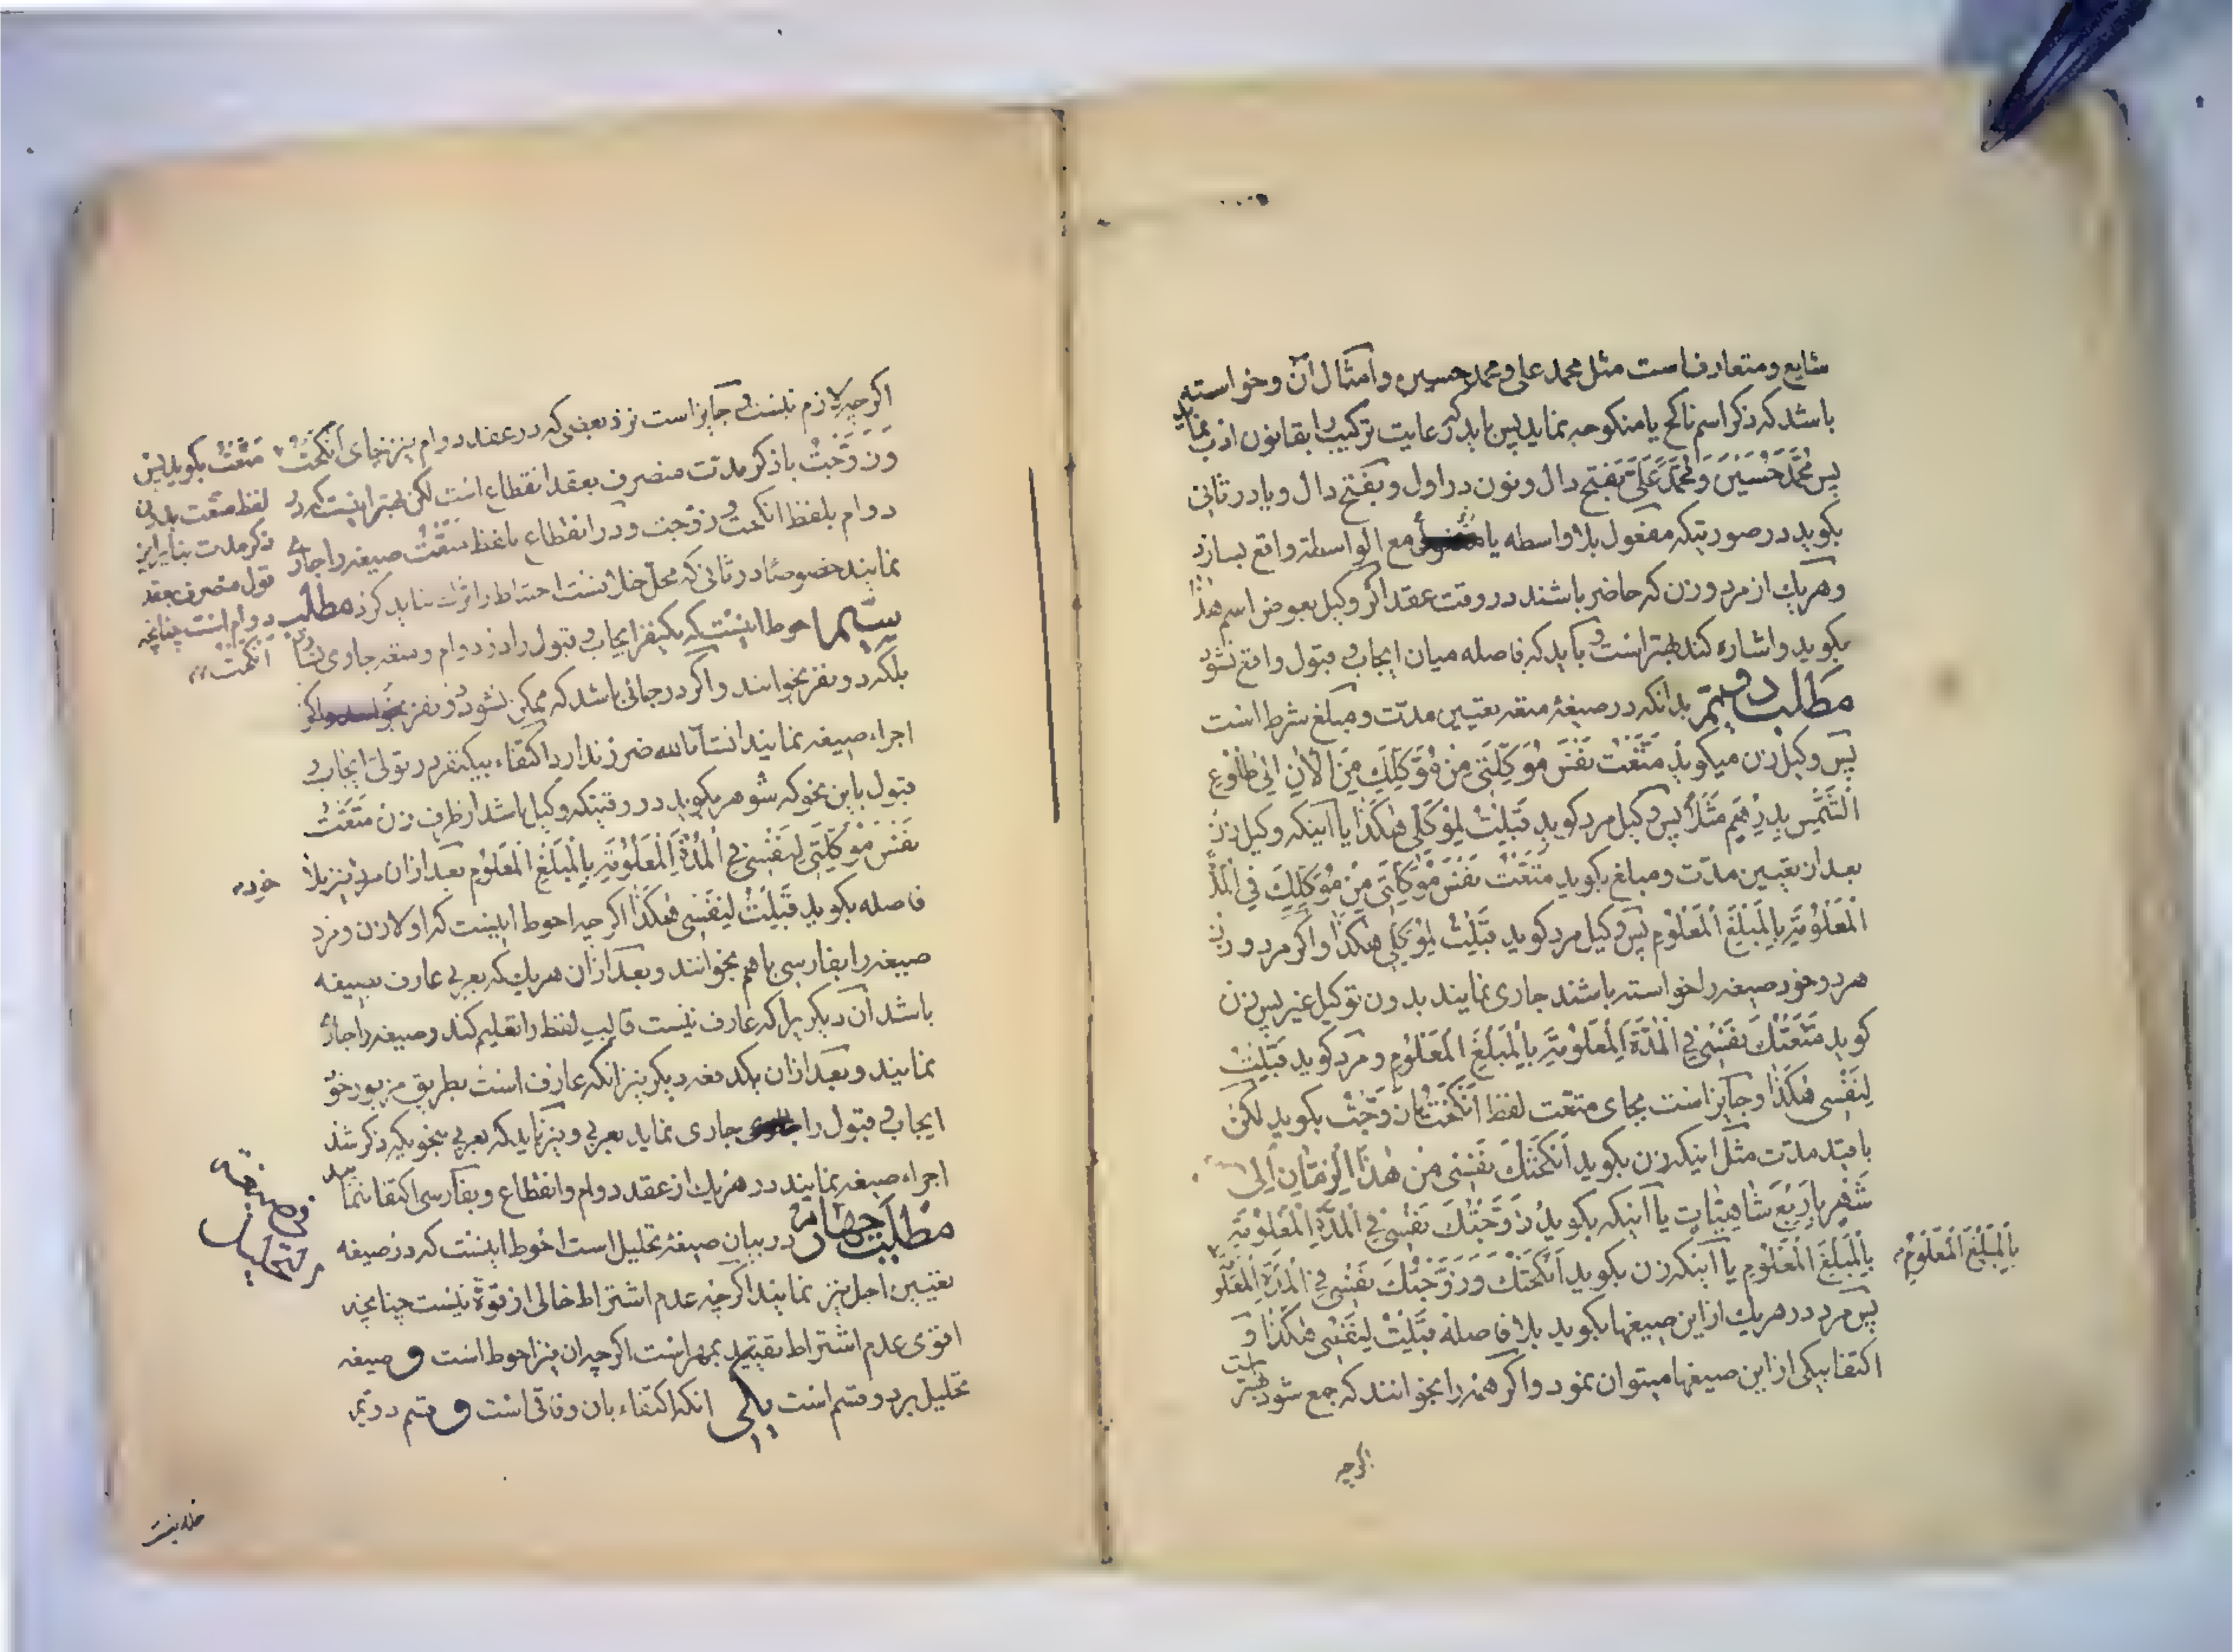 شایع و متعارف است مثل محمد علی و محمد حسین و امثال آن و خواسته
باشد که ذکر اسم ناکح یا منکوحه بنماید پس باید که رعایت ترکیب را بقانون ادب بنماید
پس مُحَمَّدَ حُسَیْنَ وَ مُحَمَّدَ عَلِیَّ بفتح دال و نون در اول و بفتح دال و یا در ثانی
بکوید در صورتیکه مفعول بلا واسطه یا مع الواسطه واقع بسازد
و هر یک از مرد و زن که حاضر باشند در وقت عقد اکر وکیل بعوض اسم هذا
بکوید و اشاره کند بهتر است و باید که فاصله میان ایجاب و قبول واقع نشود
مطلب دویم بدانکه در صیغهٔ متعه تعیین مدت و مبلغ شرط است
پس وکیل زن میکوید مَتَّعْتُ نَفْسَ مُوَکِّلَتِی مِنْ مُوَکِّلِكَ مِنَ الْآنِ اِلیٰ طُلُوعِ
الشَّمْسِ بِدِرْهَمٍ مَثَلاً پس وکیل مرد کوید قَبِلْتُ لِمُوَکِّلِی هٰکَذَا یا آنکه وکیل زن
بعد از تعیین مدت و مبلغ بکوید مَتَّعْتُ نَفْسَ مُوَکِّلَتِی مِنْ مُوَکِّلِكَ فِی الْمُدَّةِ
الْمَعْلُومَةِ بِالْمَبْلَغِ الْمَعْلُومِ پس وکیل مرد کوید قَبِلْتُ لِمُوَکِّلِی هٰکَذَا و اکر مرد و زن
هر دو خود صیغه را خواسته باشند جاری نمایند بدون توکیل غیر پس زن
کوید مَتَّعْتُكَ نَفْسِی فِی الْمُدَّةِ الْمَعْلُومَةِ بِالْمَبْلَغِ الْمَعْلُومِ و مرد کوید قَبِلْتُ
لِنَفْسِی هٰکَذَا و جایز است بجای متعت لفظ اَنْکَحْتُ یا زَوَّجْتُ بکوید لکن
با قید مدت مثل اینکه زن بکوید اَنْکَحْتُكَ نَفْسِی مِنْ هٰذَا الزَّمَانِ اِلیٰ
شَهْرٍ بِاَرْبَعِ شَاهِیَّاتٍ یا آنکه بکوید زَوَّجْتُكَ نَفْسِی فِی الْمُدَّةِ الْمَعْلُومَةِ
بِالْمَبْلَغِ الْمَعْلُومِ یا آنکه زن بکوید اَنْکَحْتُكَ وَ زَوَّجْتُكَ نَفْسِی فِی الْمُدَّةِ الْمَعْلُومَةِ
بِالْمَبْلَغِ الْمَعْلُومِ
پس مرد در هر یک از این صیغها بکوید بلا فاصله قَبِلْتُ لِنَفْسِی هٰکَذَا و
اکتفا بیکی از این صیغها میتوان نمود و اکر همه را بخوانند که جمع شود بهتر است
اکرچه
اکرچه لازم نیست و جایز است نزد بعضی که در عقد دوام نیز بجای اَنْکَحْتُ مَتَّعْتُ بکوید پس
وَ زَوَّجْتُ با ذکر مدت منصرف بعقد انقطاع است لکن بهتر اینست که در
دوام بلفظ انکحت و زوجت و در انقطاع بلفظ مَتَّعْتُ صیغه را جاری
نمایند خصوصا در ثانی که محل خلافست احتیاط را ترک نباید کرد مطلب
لفظ متعت بدون
ذکر مدت بنابر این
قول منصرف بعقد
دوام است چنانچه
انکحت
سیم احوط اینست که یکنفر ایجاب و قبول را در دوام و متعه جاری نسازد
بلکه دو نفر بخوانند و اکر در جائی باشد که ممکن نشود دو نفر
اجراء صیغه نمایند انشاءالله ضرر ندارد اکتفاء بیکنفر در تولی ایجاب و
قبول باین نحو که شوهر بکوید در وقتیکه وکیل باشد از طرف زن مَتَّعْتُ
نَفْسَ مُوَکِّلَتِی لِنَفْسِی فِی الْمُدَّةِ الْمَعْلُومَةِ بِالْمَبْلَغِ الْمَعْلُومِ بعد از آن مرد نیز بلا
فاصله بکوید قَبِلْتُ لِنَفْسِی هٰکَذَا اکرچه احوط اینست که اولا زن و مرد
صیغه را بفارسی با هم بخوانند و بعد از آن هر یک که بعربی عارف بصیغه
باشد آن دیکر را که عارف نیست قالب لفظ را تعلیم کند و صیغه را جاری
نمایند و بعد از آن یکدفعه دیکر نیز آنکه عارف است بطریق مزبور خود
ایجاب و قبول را جاری نماید بعربی و نیز باید که بعربی بنحویکه ذکر شد
اجراء صیغه نمایند در هر یک از عقد دوام و انقطاع و بفارسی اکتفا ننمایند
مطلب چهارم در بیان صیغهٔ تحلیل است احوط اینست که در صیغه
تعیین اجل نیز نمایند اکرچه عدم اشتراط خالی از قوة نیست چنانچه
اقوی عدم اشتراط تقیید بمهر است اکرچه آن نیز احوط است و صیغه
تحلیل بر دو قسم است یکی آنکه اکتفاء بآن وفاقی است و قسم دویم